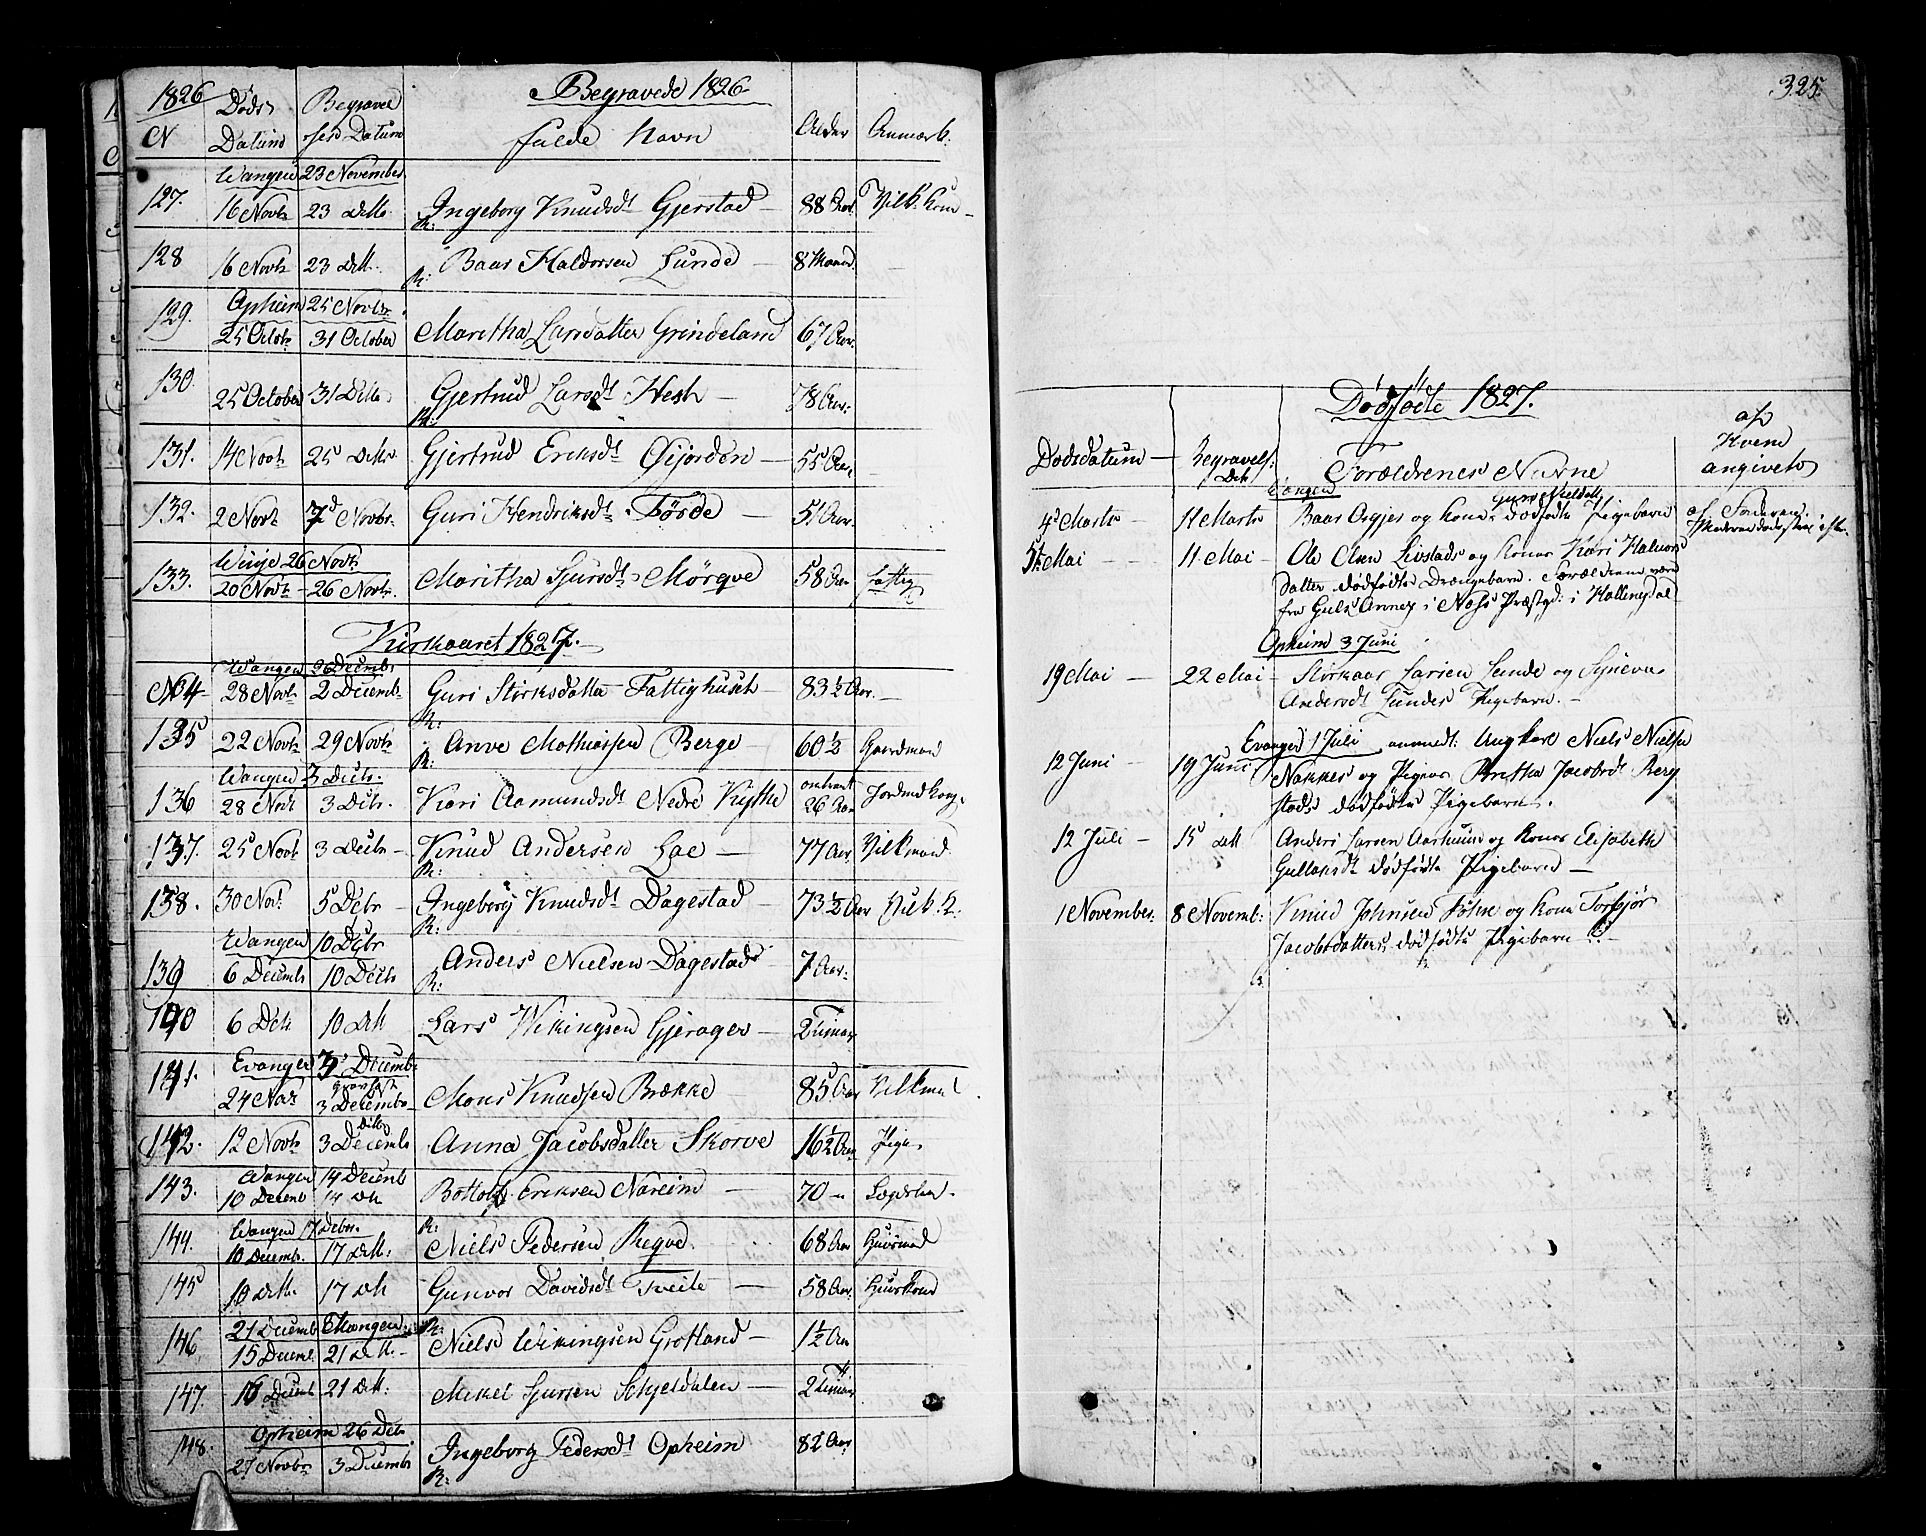 1826 Begravede 1826
N Døds Datum Begravelsens Datum fulde Navn Alder Anmærk:
Wangen 23 November
127. 16 Novbr 23 Ditto Ingeborg Knudsdt Gjerstad — 88 Aar. Vilk. Kone —
128 16 Novbr 23 Ditt. Baar Haldorsen Lunde — 8 Maaned.
Opheim 25 Novbr
129. 25 Octob 31 October Maritha Larsdatter Grindeland 67 Aar.
130. 25 October 31 Ditto Gjertrud Larsdt Hesth — 78 Aar.
R:
131. 14 Novbr 25 Ditto Gjertrud Eriksdt Øijorden — 55 Aar
132. 2 Novbr 7d Novbr. Guri Hendriksdt Førde — 51 Aar.
Winje 26 Novbr
133. 20 Novbr — 26 Novbr. Maritha Sjursdt Mørqve 58 Aar Fattig
Kirkaaret 1827.
Wangen 2 Decembr
N 134 28 Novbr 2 Decemb. Guri Størksdatter Fattighuset — 83 1/2 Aar. —
R:
135 22 Novbr 29 Novbr Anve Mathiassen Berge 60 1/2 Gaardmand
R:
Wangen 3 Decbr.
136 28 Novbr 3 Decbr. Kari Aamundsdt Nedre Kythe omtrent 26 Aar
137. 25 Novbr 3 Decbr — Knud Andersen Lae — 77 Aar Vilkmand
R:
138. 30 Novbr. 5 Debr — Ingeborg Knudsdt Dagestad — 73 1/2 Aar Vilk. K.
R:
Wangen 10 Debr
139 6 Decemb 10 Decbr Anders Nielsen Dagestad 7 Aar.
R:
140 6 Dito 10 Dito Lars Wikingsen Gjerager — 2 Timar
Evanger 3 Decemb
141. 24 Nov 3 Decemb Mons Knudsen Brække 85 Aar Vilkmand
142. 12 Novbr 3 Decemb Anna Jacobsdatter Skorve 16 1/2 Aar Pige
Wangen 14 Decemb
143. 10 Decemb 14 Dito Bottolf Eriksen Nareim — 70 —
Wangen 17 Debr. R:
144. 10 Decemb. 17 Ditt: Niels Pedersen Reqve 68 Aar Huusmand
145 10 Ditt. 17 Dito Gunvor Davidsdt Tveite — 58 Aar. Huuskone
21 Decemb Wangen R:
146 15 Decemb. 21 Ditt. Niels Wikingsen Grotland — 1 1/2 Aar
147. 16 Decemb 21 Ditt: Mikel Sjursen Schjeldalen — 2 Timar
Opheim 26 Debr
148. 27 Novbr 3 Decembr Ingeborg Pedersdt Opheim 82 Aar
R:
325.
Dødfødte 1827.
Dødsdatum — Begravels: Dito Forældrenes Navne af Hvem angivet
Wangen
4de Marts — 11 Marts Baar Asgjer og Kone Guro Nielsdatt dødfødte Pigebarn af Faderen.
5te Mai — 11 Mai — Ole Olsen Livstads og Kones Kari Halvors
datter dødfødte Drængebarn. Forældrene være
fra Guls Annex i Næss Præstgd: i Hallingdal
Opheim 3 Juni
19 Mai — 22 Mai — Størkaar Larsen Lunde og Synneva
Andersdt Lundes Pigebarn. —
Evanger 1 Juli anmeldt: Ungkarl Niels Nielsen
12 Juni — 19 Juni Nækkes og Pigens Brita Jacobsdt Berg
stads dødfødte Pigebarn.
12 Juli — 15 Dito Anders Larsen Aarhuus og Kones Elisabeth
Gullaksdt dødfødte Pigebarn —
1 November: 8 Novemb: Knud Johnsen Bøhre og Kone Torbjør
Jacobsdatters dødfødte Pigebarn —